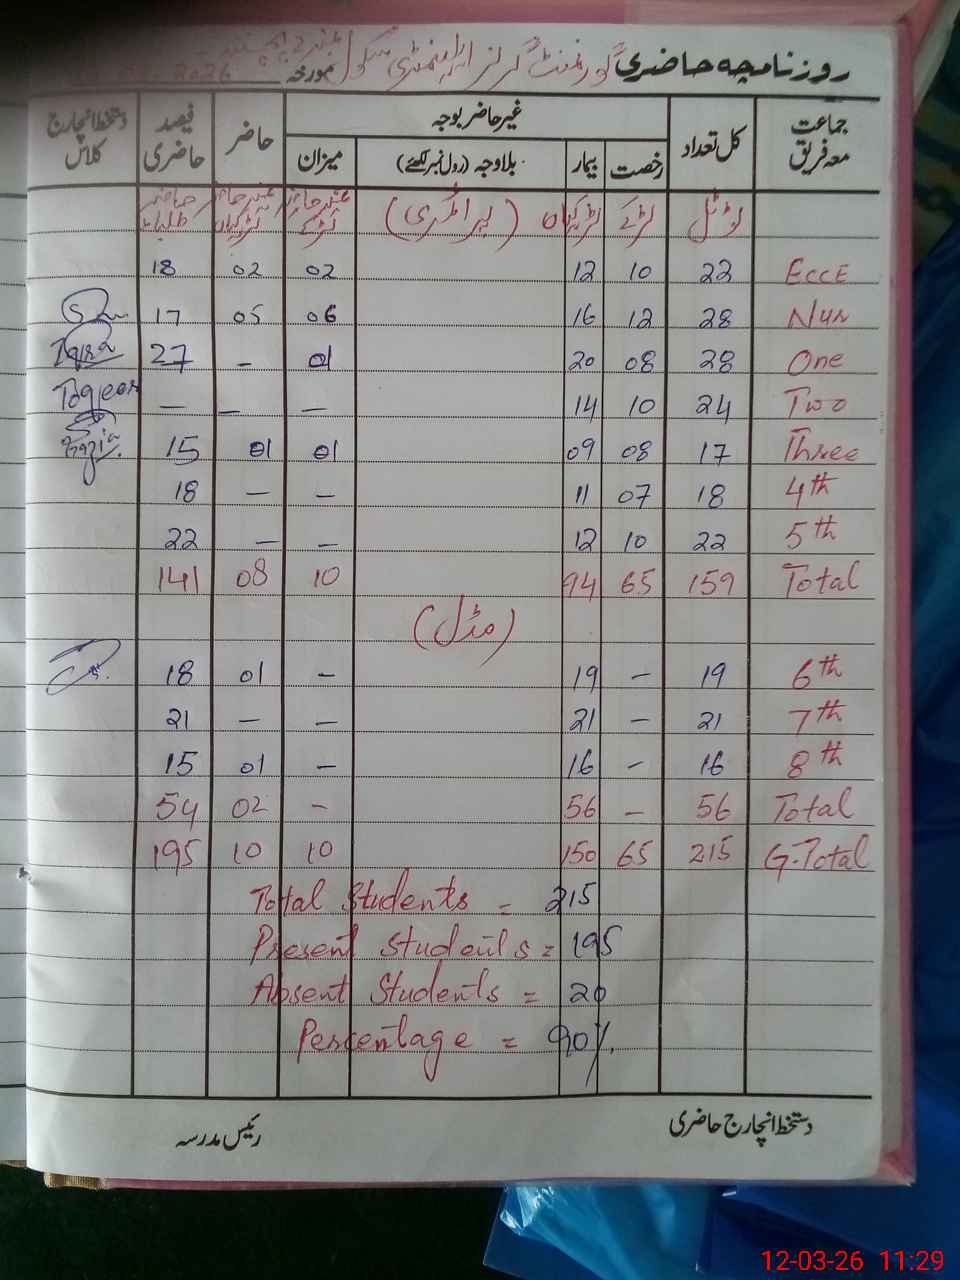 روزنامچہ حاضری گورنمنٹ گرلز ایلیمنٹری سکول مورخہ 2026
جماعت معہ فریق کل تعداد غیر حاضر بوجہ حاضر فیصد حاضری دستخط انچارج کلاس
رخصت بیمار بلاوجہ (رول نمبر لکھئے) میزان
ٹوٹل لڑکے لڑکیاں (پرائمری) غیر حاضر لڑکے غیر حاضر لڑکیاں حاضر طلباء
ECCE 22 10 12 02 02 18
Nur 28 12 16 06 05 17
One 28 08 20 01 - 27
Two 24 10 14 - - -
Three 17 08 09 01 01 15 Razia
4th 18 07 11 - - 18
5th 22 10 12 - - 22
Total 159 65 94 10 08 141
(مڈل)
6th 19 - 19 - 01 18
7th 21 - 21 - - 21
8th 16 - 16 - 01 15
Total 56 - 56 - 02 54
G.Total 215 65 150 10 10 195
Total Students = 215
Present Students = 195
Absent Students = 20
Percentage = 90%.
دستخط انچارج حاضری رئیس مدرسہ
12-03-26 11:29